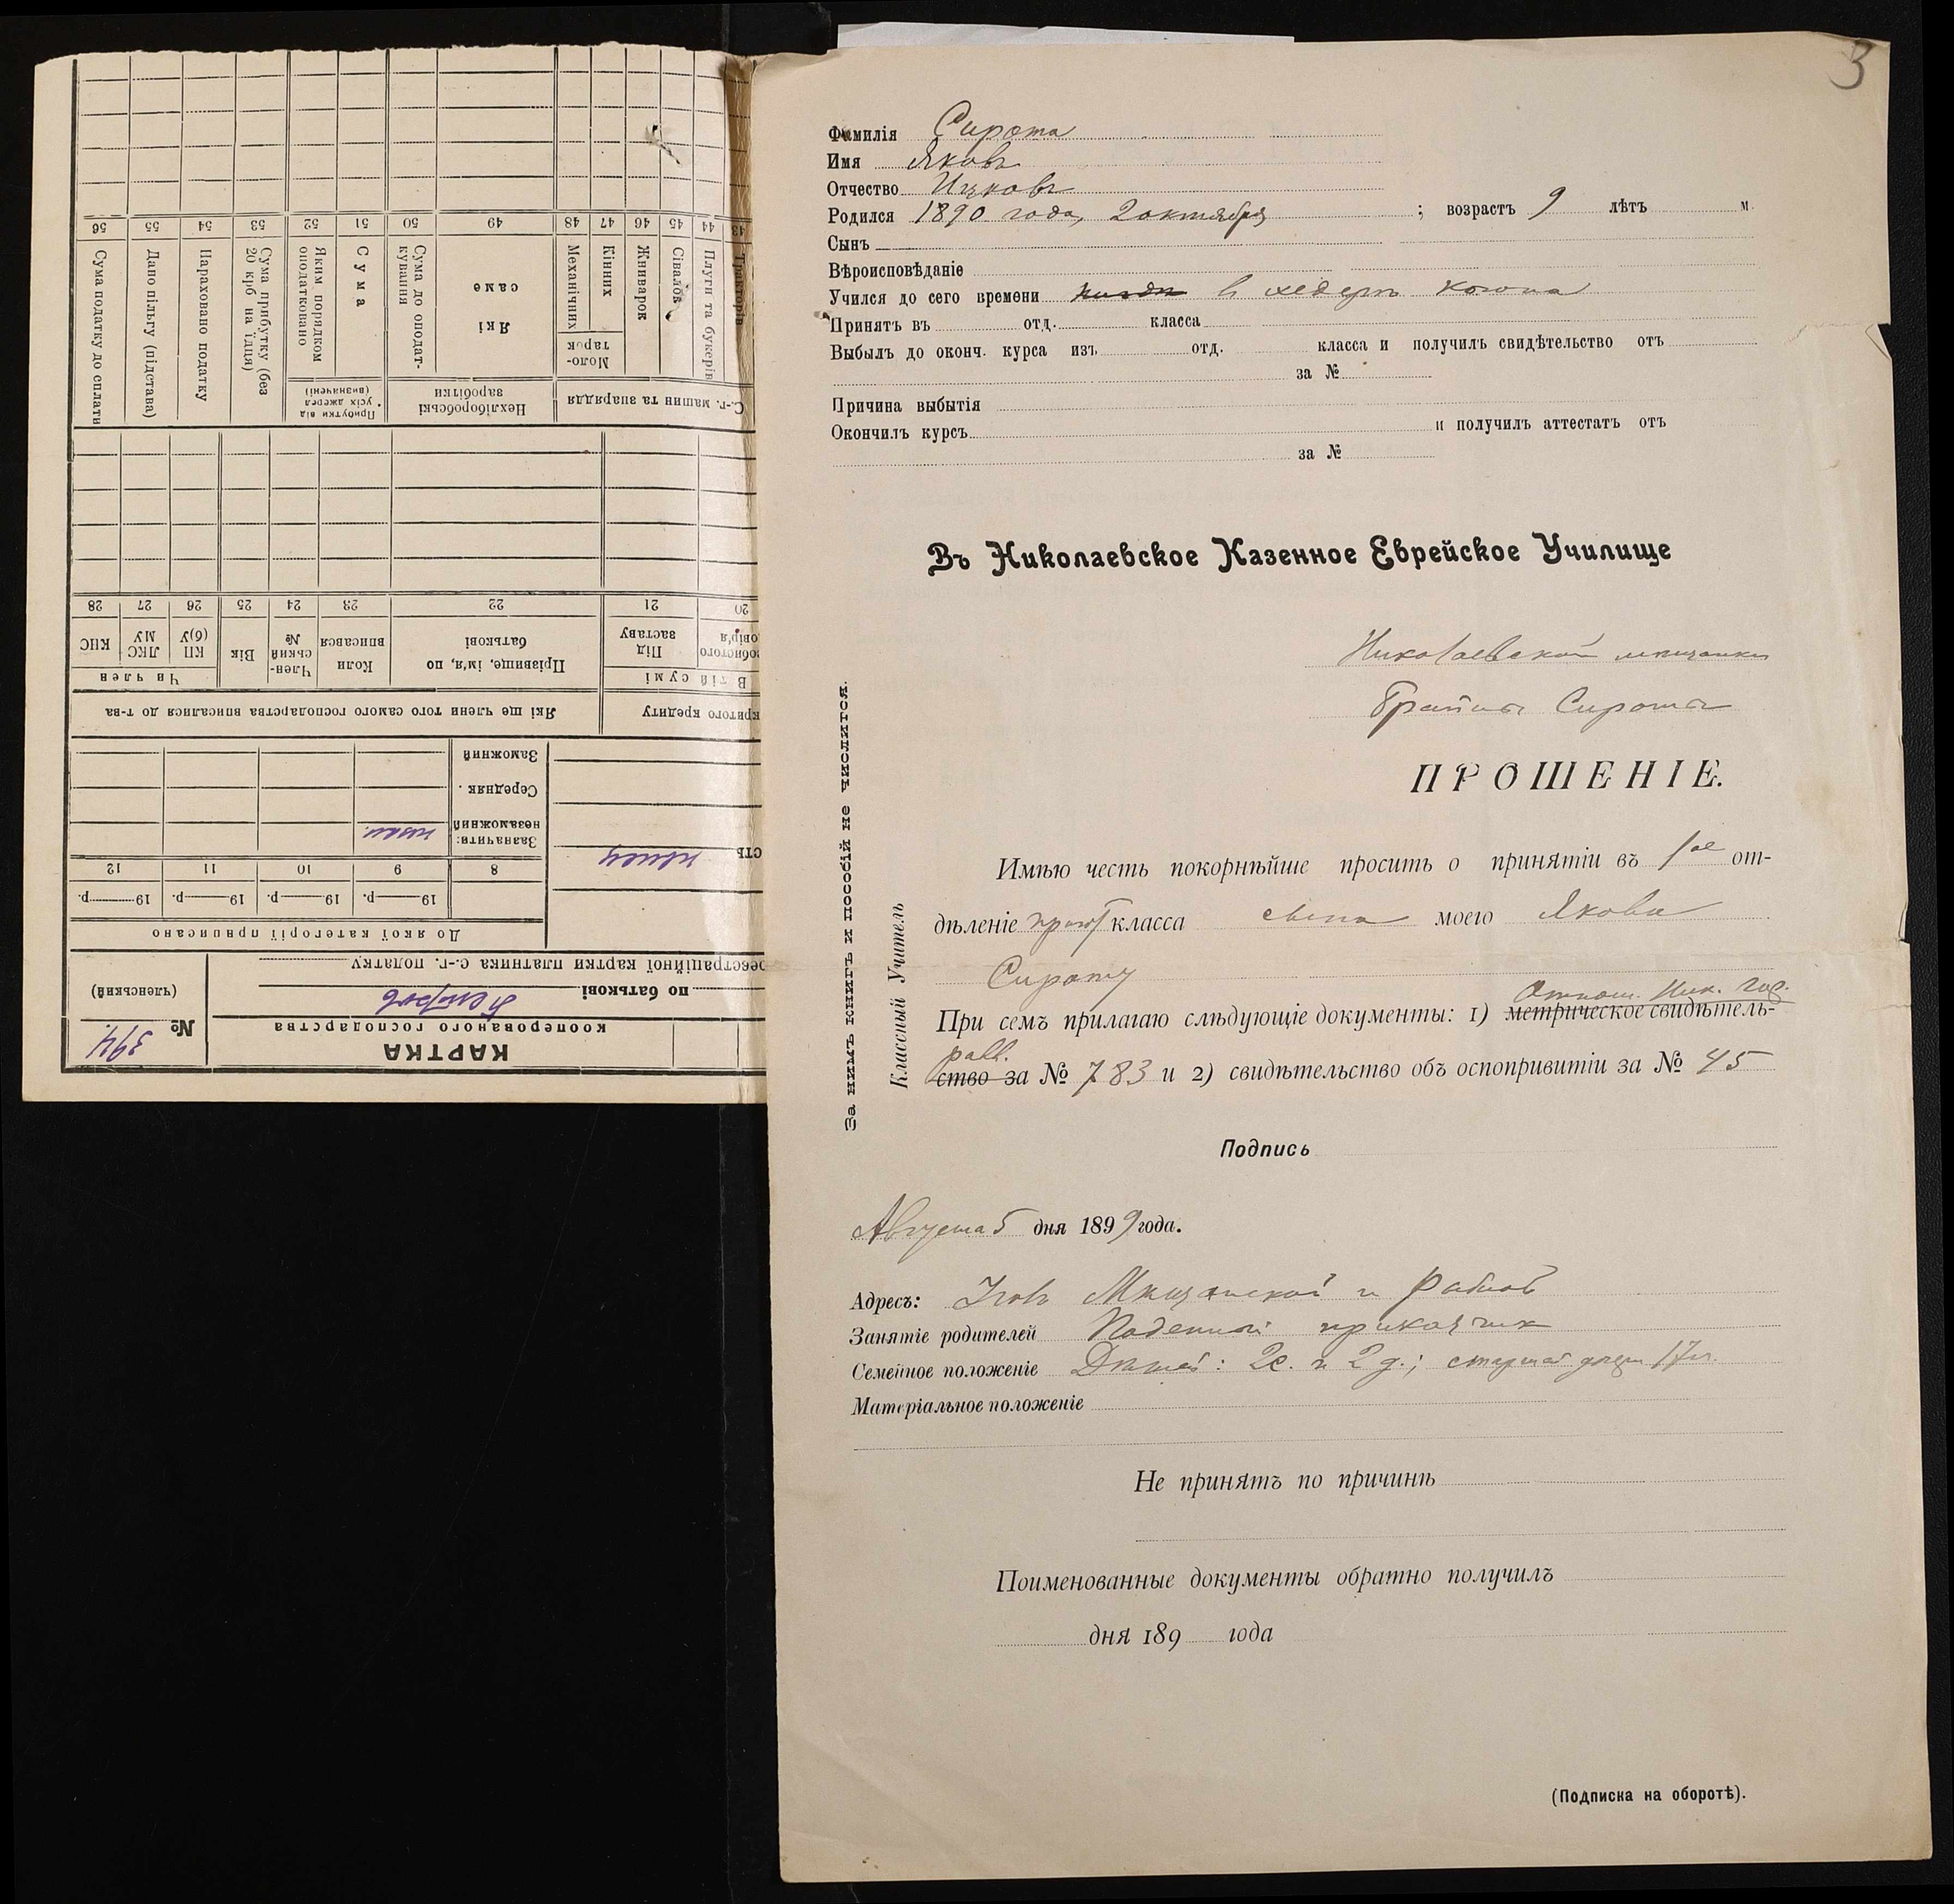 3
Фамилія Сирота
Имя Яковъ
Отчество Ицковъ
Родился 1890 года, 2 октября ; возрастъ 9 лѣтъ м.
Сынъ
Вѣроисповѣданіе
Учился до сего времени в хедерѣ Когона
Принятъ въ отд. класса
Выбылъ до оконч. курса изъ отд. класса и получилъ свидѣтельство отъ
за №
Причина выбытія
Окончилъ курсъ и получилъ аттестатъ отъ
за №
Въ Николаевское Казенное Еврейское Училище
Николаевской мѣщанки
Брайны Сирота
ПРОШЕНІЕ.
Имѣю честь покорнѣйше просить о принятіи въ 1ое от-
дѣленіе пригот класса сына моего Якова
Сироту
Отнош. Ник. гор.
При семъ прилагаю слѣдующіе документы: 1) метрическое свидѣтель-
равв.
ство за № 783 и 2) свидѣтельство объ оспопривитіи за № 45
Подпись
Августа 5 дня 1899 года.
Адресъ: Уголъ Мѣщанской и Рыбной
Занятіе родителей Поденный приказчик
Семейное положеніе Дѣтей: 2 с. и 2 д.; старшей дочери 17 л.
Матеріальное положеніе
Не принятъ по причинѣ
Поименованные документы обратно получилъ
дня 189 года
(Подписка на оборотѣ).
За нимъ книгъ и пособій не числится.
Классный Учитель
КАРТКА
кооперованого господарства
№ 394
(членський)
по батькові Петрові
реєстраційної картки платника с.-г. податку
До якої категорії приписано
19 р. 19 р. 19 р. 19 р.
8 9 10 11 12
Зазначити:
незаможний
Середняк.
Заможний
критого кредиту
Які ще члени того самого господарства вписалися до т-ва
В тій сумі
Чи член
Під заставу
Прізвище, ім'я, по батькові
Коли вписався
Член-ський №
Вік
КП (б)У
ЛКС МУ
КНС
20 21 22 23 24 25 26 27 28
С.-г. машин та знаряддя
Нехліборобські заробітки
Прибутки від усіх джерел (визначені)
Тракторів
Плуги та букерів
Сівалок
Жниварок
Моло-тарок
Кінних
Механічних
Які саме
Сума до оподат-кування
Сума
Яким порядком оподатковано
Сума прибутку (без 20 крб на їдця)
Нараховано податку
Дано пільгу (підстава)
Сума податку до сплати
43 44 45 46 47 48 49 50 51 52 53 54 55 56